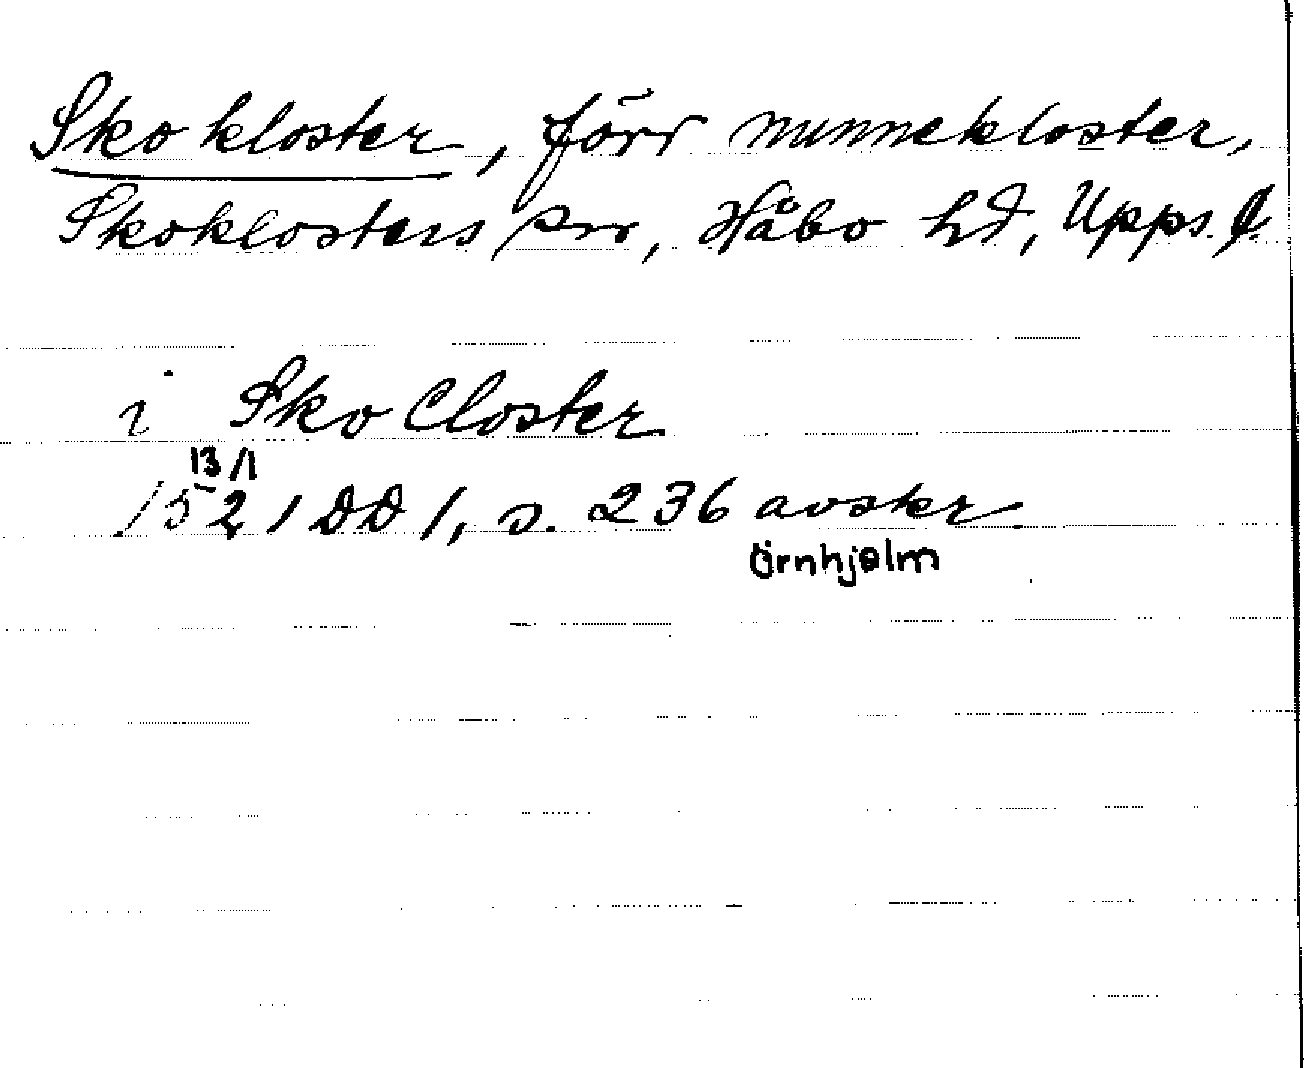 Skokloster, förr nunnekloster,
Skoklosters sn, Håbo hd, Upps. l.
i Sko Closter
13/1
1521 DD 1, s. 236 avskr
Örnhjelm